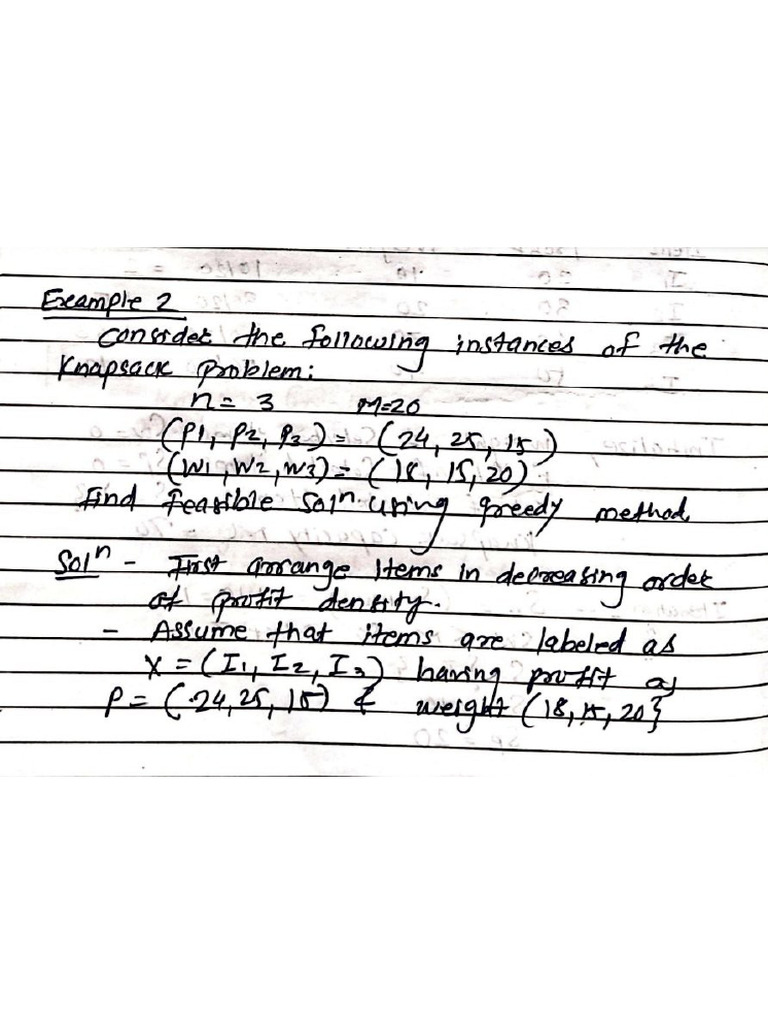 Example 2
Consider the following instances of the
Knapsack Problem:
n = 3 M=20
(P1, P2, P3) = (24, 25, 15)
(W1, W2, W3) = (18, 15, 20).
Find Feasible Solⁿ. using greedy method.
Solⁿ - First arrange items in decreasing order
of profit density.
- Assume that items are labeled as
X = (I1, I2, I3) having profit as
P = (24, 25, 15) & weight (18, 15, 20}